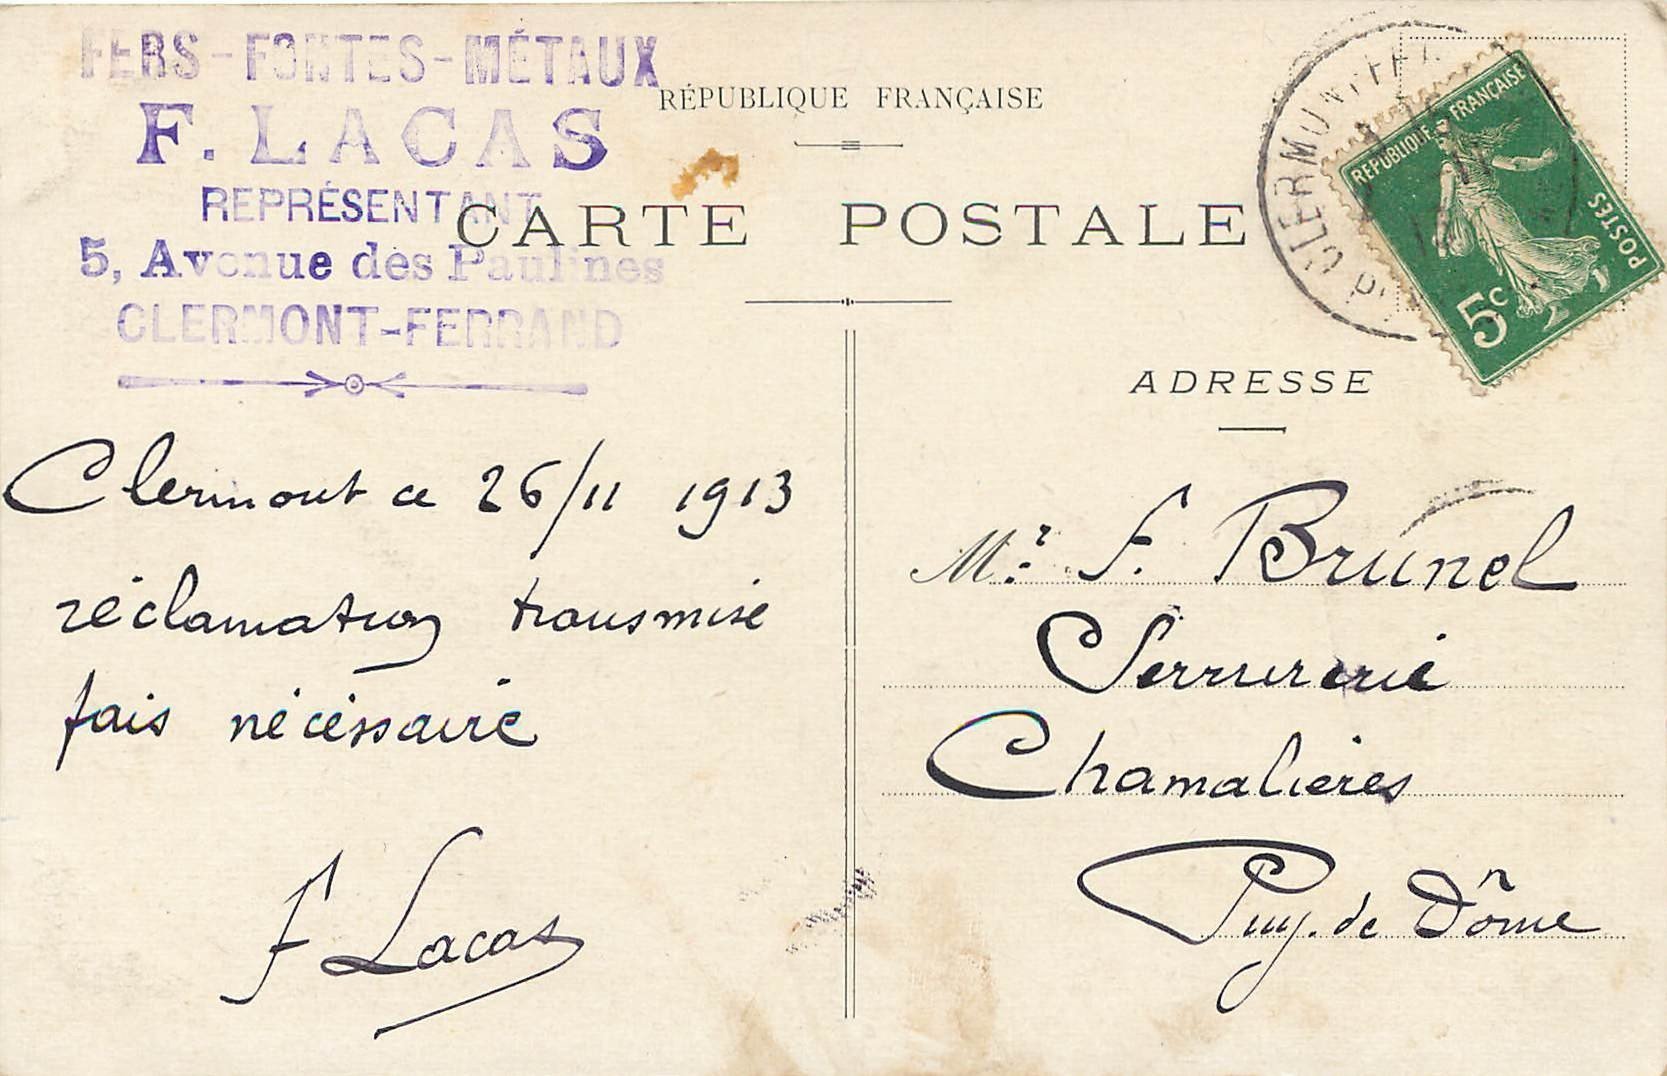 FERS-FONTES-MÉTAUX
F. LACAS
REPRÉSENTANT
5, Avenue des Paulines
CLERMONT-FERRAND
RÉPUBLIQUE FRANÇAISE
CARTE POSTALE
CLERMONT-FER
REPUBLIQUE FRANÇAISE
POSTES
5c
Clermont ce 26/11 1913
réclamation transmise
fais nécessaire
F Lacas
ADRESSE
Mr. F. Brunel
Serrurerie
Chamalières
Puy. de Dôme